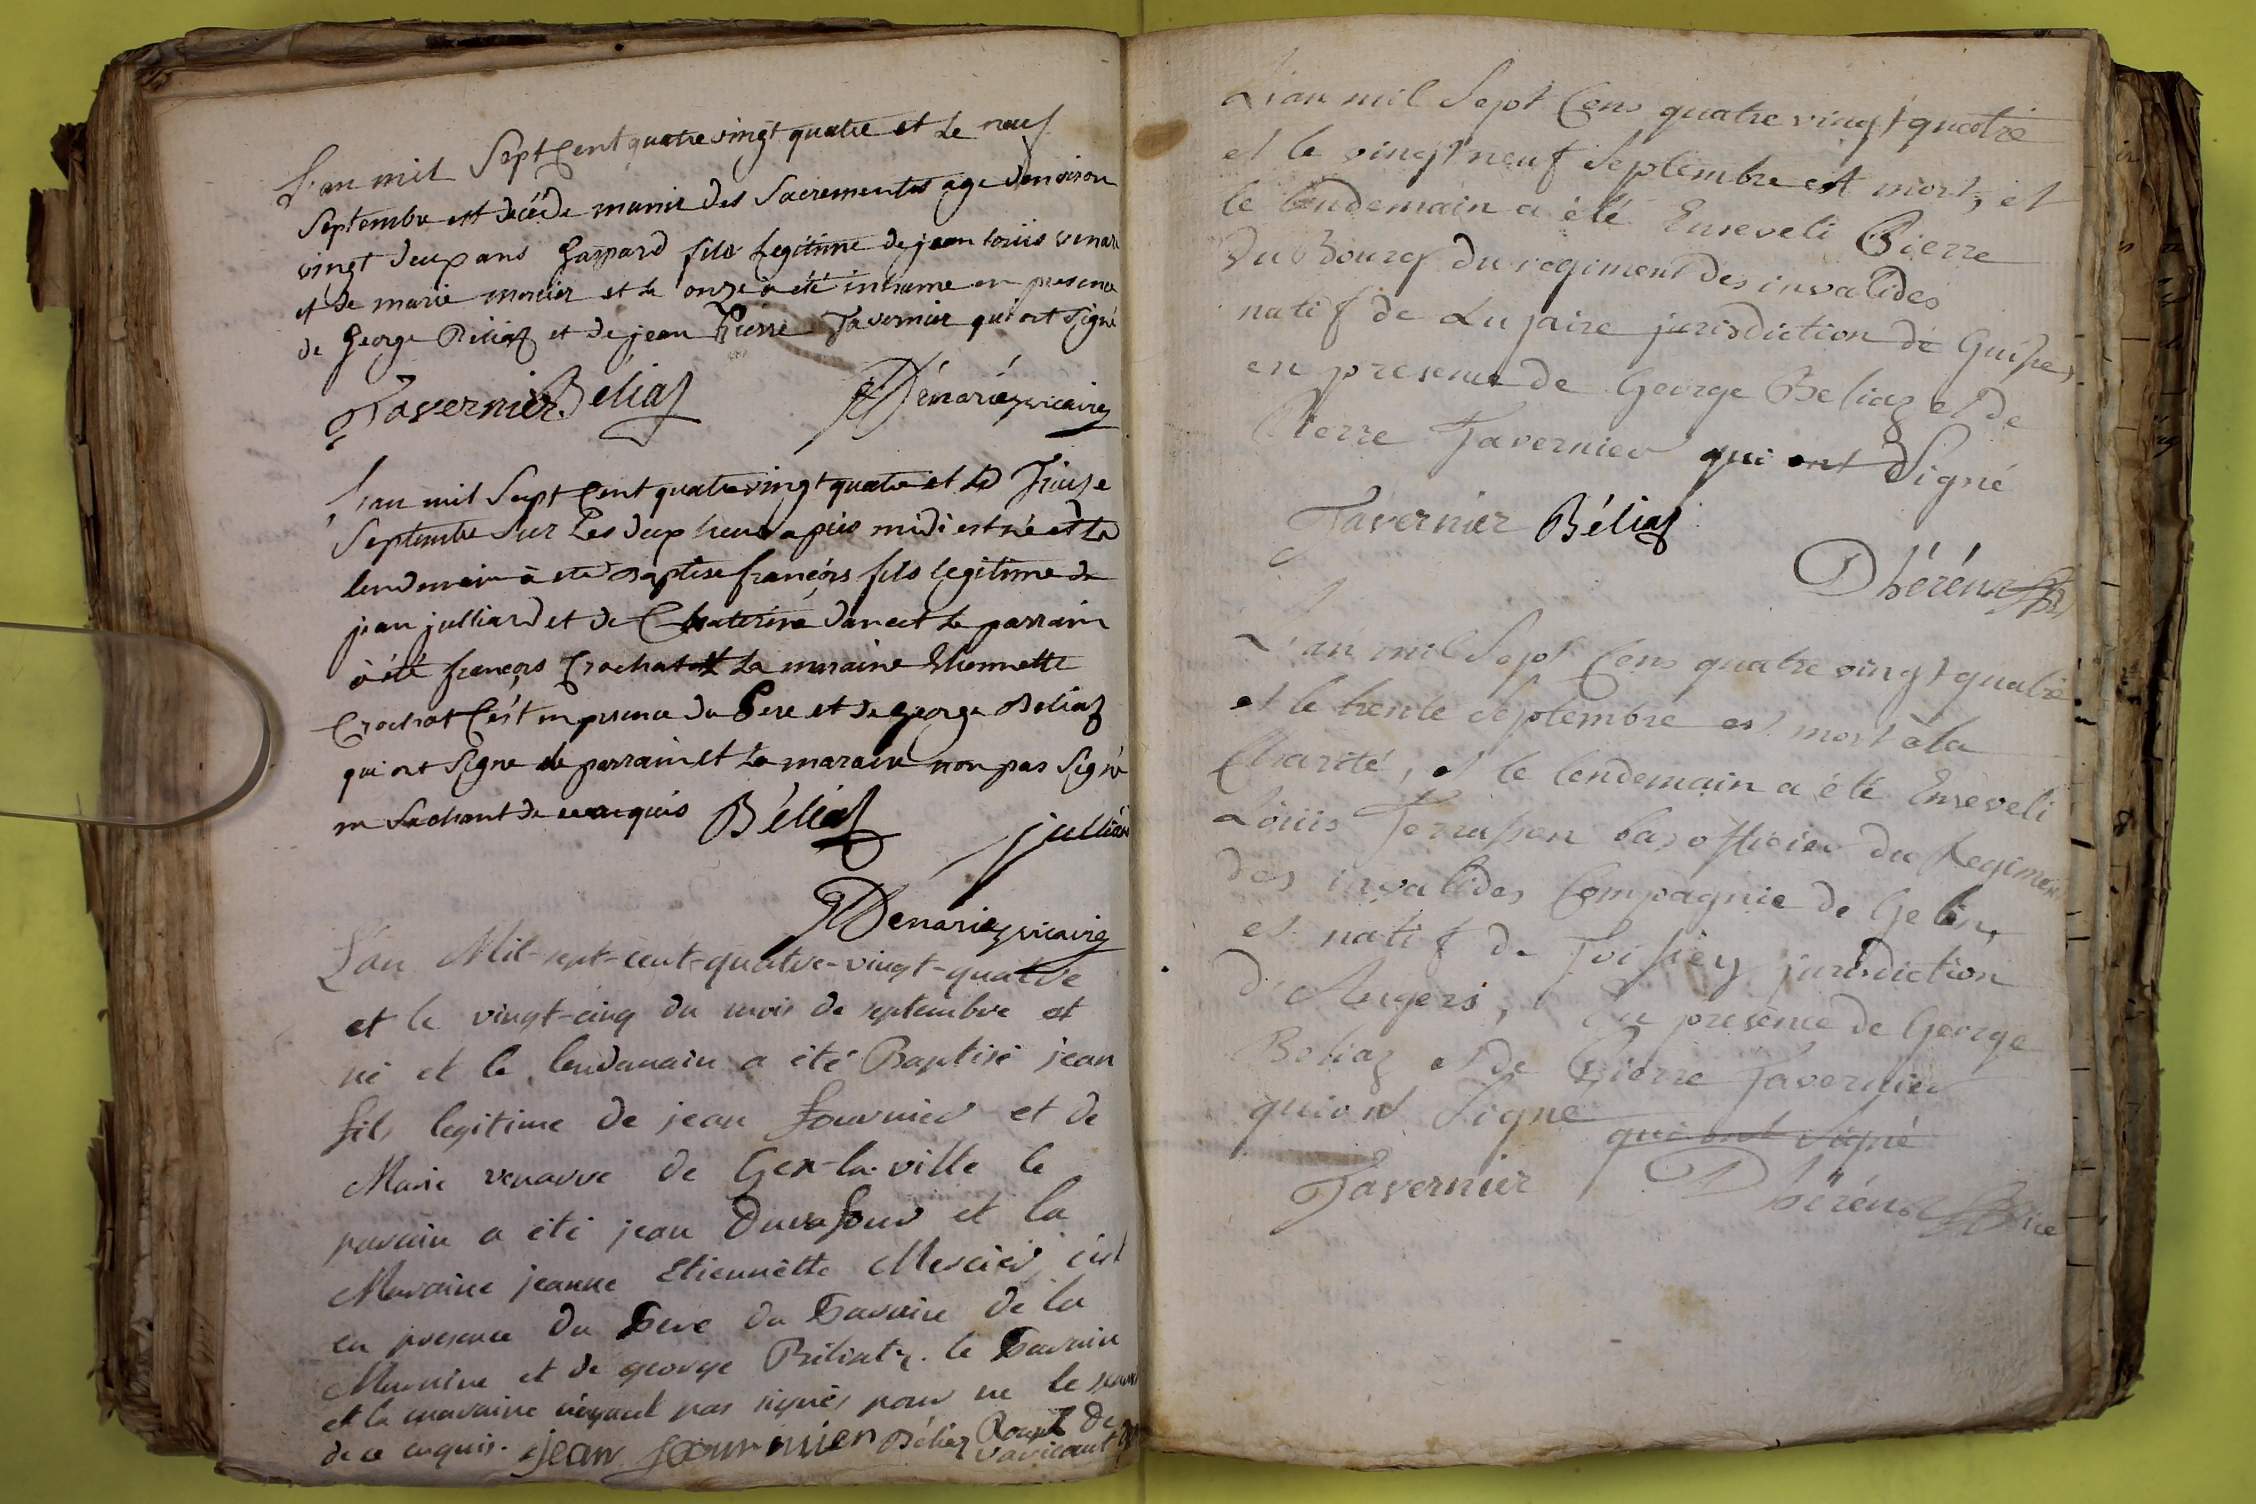 L'an mil Sept Cent quatre vingt quatre et Le neuf
Septembre est décédé munir des Sacrements age denviron
vingt deux ans Gaspard fils Legitime de jean louis venar
et de marie mercier et le onze a été inhume en presence
de George Béliaz et de jean Pierre Tavernier qui ont Signé
Tavernier Béliaz Dénariéz vicairez
L'an mil Sept Cent quatre vingt quatre et Le Treize
Septembre sur Les deux heures apres midi est né et Le
lendemain à été Baptise françois fils legitime de
jean julliard et de Chaterine dancet Le parrain
à été françois Crochat et La maraine Etiennette
Crochat C'est en presence du Pere et de George Beliaz
qui ont signe le parrain et La maraine non pas Signé
ne Sachant de ce requis Béliaz julliard
Denariez vicairez
L'an Mil-sept-cent-quatre-vingt-quatre
et le vingt-cinq du mois de septembre est
né et le lendemain a été Baptisé jean
fils legitime de jean fournier et de
Marie venarre de Gex-la-ville le
parain a été jean Duvafour et la
Maraine jeanne Etiennette Mercier c'est
en presence du Pere du Parain de la
Maraine et de george Béliatz. le Parain
et la maraine n'ayant pas signés pour ne le savoir
de ce enquis. jean fournier Béliaz
L'an mil Sept Cens quatre vingt quatre
et le vingt neuf Septembre est mort, et
le lendemain a été Enseveli Pierre
Dubourg du regiment des invalides
natif de Lusaire jurisdiction de Guise,
en presence de George Beliaz et de
Pierre Tavernier qui ont Signé
Tavernier Béliaz
Dhéréns
L'an mil Sept Cens quatre vingt quatre
et le trente Septembre est mort à la
Charité, et le lendemain a été Enseveli
Louis Terrassen bas officier du Regiment
des invalides Compagnie de Gelin,
et natif de Foissey jurisdiction
d'Angers, En presence de George
Beliaz et de Pierre Tavernier
qui ont Signé qui ont signé
Tavernier Dhéréns